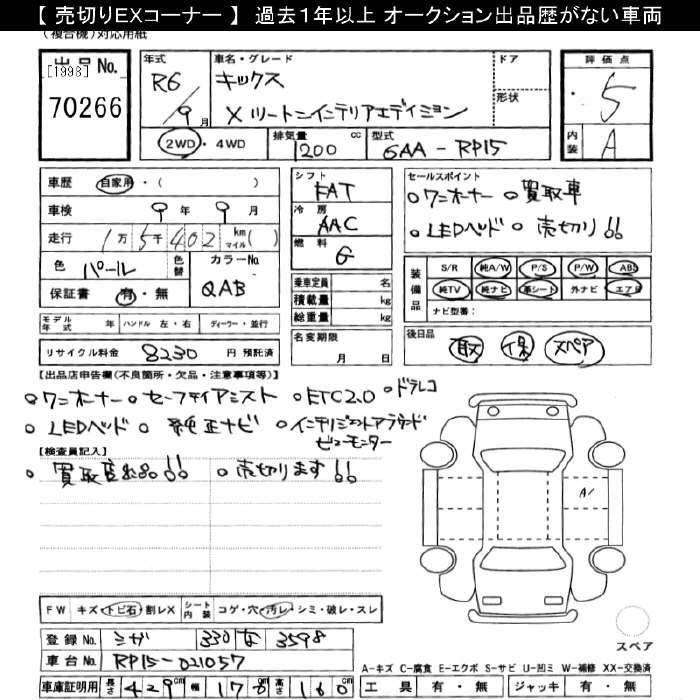 【 売切りEXコーナー 】 過去1年以上 オークション出品歴がない車両
(複合機)対応用紙
出品No.
[1998]
70266
年式
R6/9月
車名・グレード
キックス
X ツートーンインテリアエディション
ドア
形状
評価点
5
内装
A
2WD・4WD
排気量 1200 cc
型式 6AA-RP15
車歴 自家用・( )
車検 9年 9月
走行 1万5千402 km マイル( )
色 パール 色替
カラーNo. QAB
保証書 有・無
シフト FAT
冷房 AAC
燃料 G
乗車定員 名
積載量 kg
総重量 kg
セールスポイント
。ワンオーナー 。買取車
。LEDヘッド 。売切り!!
装備品
S/R 純A/W P/S P/W ABS
純TV 純ナビ 革シート 外ナビ エアB
ナビ型番:
モデル年式 年 ハンドル 左・右 ディーラー・並行
リサイクル料金 8230 円 預託済
名変期限
月 日
後日品
取 保 スペア
【出品店申告欄(不良箇所・欠品・注意事項等)】
。ワンオーナー 。セーフティアシスト 。ETC2.0 。ドラレコ
。LEDヘッド 。純正ナビ 。インテリジェントアラウンドビューモニター
【検査員記入】
。買取車出品!! 。売切ります!!
A1
FW キズ・トビ石・割レX
シート内装 コゲ・穴・汚レ・シミ・破レ・スレ
登録No. シガ 330 な 3598
車台No. RP15-021057
車庫証明用 長さ 429cm 幅 176 高さ 160
スペア
A-キズ C-腐食 E-エクボ S-サビ U-凹ミ W-補修 XX-交換済
工具 有・無 ジャッキ 有・無